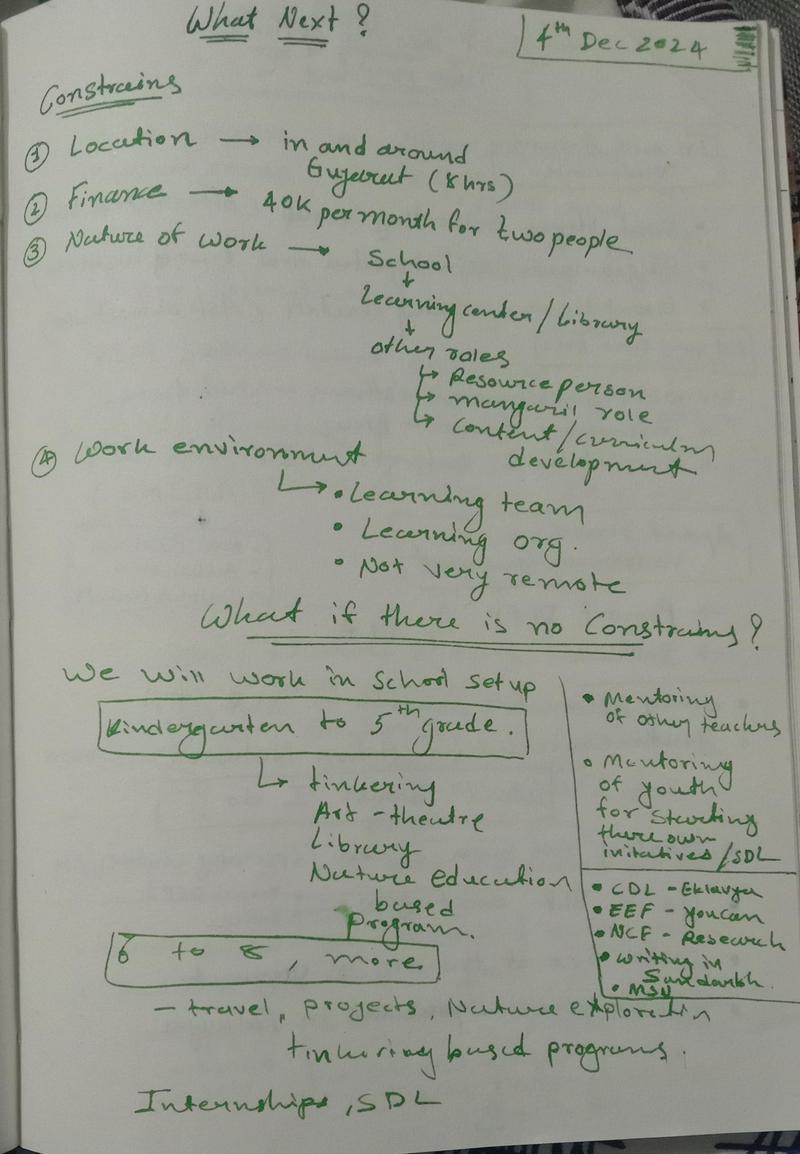 What Next?
4th Dec 2024
Constrains
① Location → in and around
Gujarat (8 hrs)
② Finance → 40K per month for two people
③ Nature of work → School
↓
Learning center / Library
↓
other roles
↳ Resource person
↳ role
↳ Content/curriculum
development
④ Work environment
↳ • Learning team
• Learning org.
• Not very remote
What if there is no Constrains?
We will work in School setup
Kindergarten to 5th grade.
↳ tinkering
Art - theatre
Library
Nature education
based
program.
6 to 8, more
- travel, projects, Nature exploration
tinkering based programs.
Internships, SDL
• Mentoring
of other teachers
• Mentoring
of youth
for starting
there own
initatives/SDL
• CDL - Eklavya
• EEF - youcan
• NCF - Research
• writing in
Sandarbh.
• MSU